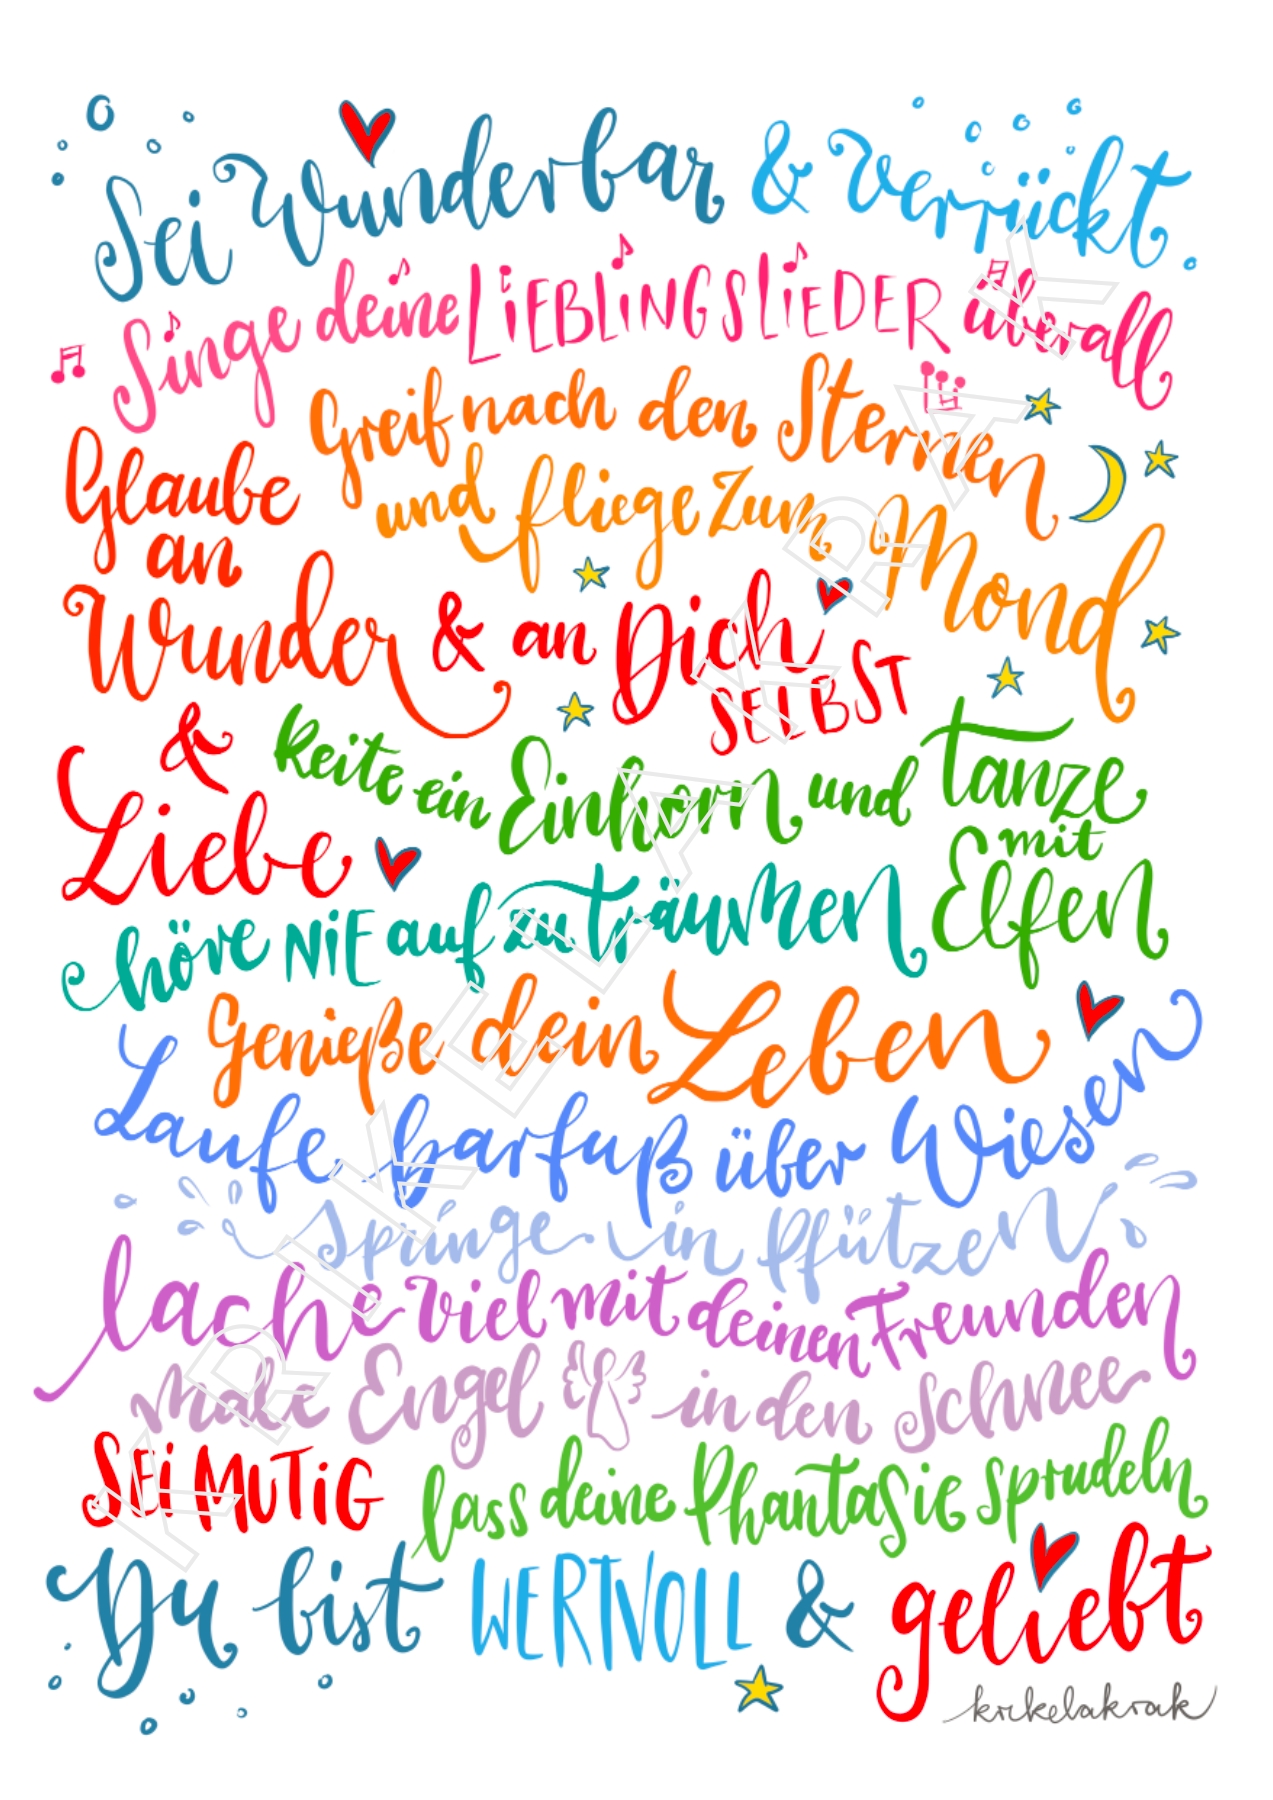 Sei Wunderbar & Verrückt.
Singe deine LiEBLiNGSLiEDER überall
Greif nach den Sternen
und fliege zum Mond
Glaube
an
Wunder & an Dich
SELBST
&
Liebe
Reite ein Einhorn und tanze
mit
Elfen
höre NiE auf zu träumen
Genieße dein Leben
Laufe barfuß über Wiesen
Springe in Pfützen
lache viel mit deinen Freunden
male Engel in den Schnee
SEi MUTiG lass deine Phantasie sprudeln
Du bist WERTVOLL & geliebt
krikelakrak
KRIKELAKRAK